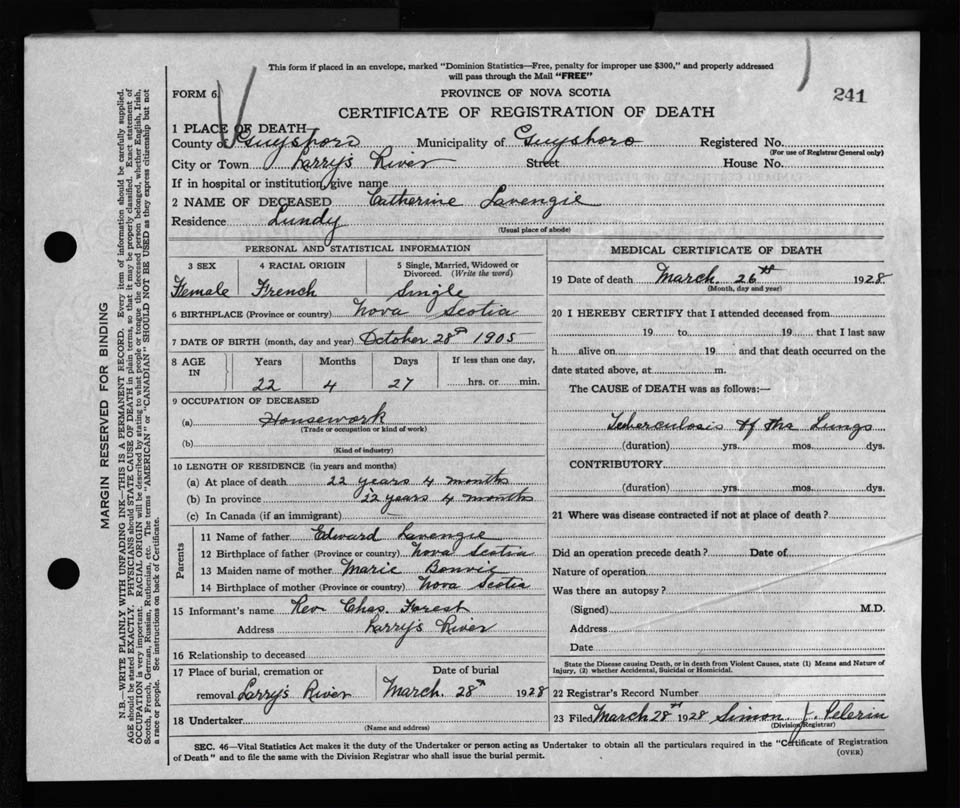 This form if placed in an envelope, marked "Dominion Statistics—Free, penalty for improper use $300," and properly addressed
will pass through the Mail "FREE"
FORM 6.
PROVINCE OF NOVA SCOTIA
241
CERTIFICATE OF REGISTRATION OF DEATH
1 PLACE OF DEATH
County of Guysboro Municipality of Guysboro Registered No.
(For use of Registrar General only)
City or Town Larry's River Street House No.
If in hospital or institution, give name
2 NAME OF DECEASED Catherine Lavengie
Residence Lundy
(Usual place of abode)
PERSONAL AND STATISTICAL INFORMATION
3 SEX 4 RACIAL ORIGIN 5 Single, Married, Widowed or Divorced. (Write the word)
Female French Single
6 BIRTHPLACE (Province or country) Nova Scotia
7 DATE OF BIRTH (month, day and year) October 28th 1905
8 AGE IN Years Months Days If less than one day,
22 4 27 hrs. or min.
9 OCCUPATION OF DECEASED
(a) Housework
(Trade or occupation or kind of work)
(b)
(Kind of industry)
10 LENGTH OF RESIDENCE (in years and months)
(a) At place of death 22 years 4 months
(b) In province 22 years 4 months
(c) In Canada (if an immigrant)
Parents
11 Name of father Edward Lavengie
12 Birthplace of father (Province or country) Nova Scotia
13 Maiden name of mother Marie Bonvie
14 Birthplace of mother (Province or country) Nova Scotia
15 Informant's name Rev Chas. Forest
Address Larry's River
16 Relationship to deceased
17 Place of burial, cremation or Date of burial
removal Larry's River March 28th 1928
18 Undertaker
(Name and address)
MEDICAL CERTIFICATE OF DEATH
19 Date of death March 26th 1928
(Month, day and year)
20 I HEREBY CERTIFY that I attended deceased from
19 to 19 that I last saw
h alive on 19 and that death occurred on the
date stated above, at m.
The CAUSE of DEATH was as follows:—
Tuberculosis of the Lungs
(duration) yrs. mos. dys.
CONTRIBUTORY
(duration) yrs. mos. dys.
21 Where was disease contracted if not at place of death?
Did an operation precede death? Date of
Nature of operation
Was there an autopsy?
(Signed) M.D.
Address
Date
State the Disease causing Death, or in death from Violent Causes, state (1) Means and Nature of
Injury, (2) whether Accidental, Suicidal or Homicidal.
22 Registrar's Record Number
23 Filed March 28th 1928 Simon J. Pelerin
(Division Registrar)
SEC. 46—Vital Statistics Act makes it the duty of the Undertaker or person acting as Undertaker to obtain all the particulars required in the "Certificate of Registration
of Death" and to file the same with the Division Registrar who shall issue the burial permit.
(OVER)
MARGIN RESERVED FOR BINDING
N.B.—WRITE PLAINLY WITH UNFADING INK—THIS IS A PERMANENT RECORD. Every item of information should be carefully supplied.
AGE should be stated EXACTLY. PHYSICIANS should STATE CAUSE OF DEATH in plain terms, so that it may be properly classified. Exact statement of
OCCUPATION is very important. RACIAL ORIGIN will be described by stating to what people or tongue the deceased person belonged, whether English, Irish,
Scotch, French, German, Russian, Ruthenian, etc. The terms "AMERICAN" or "CANADIAN" SHOULD NOT BE USED as they express citizenship but not
a race or people. See instructions on back of Certificate.